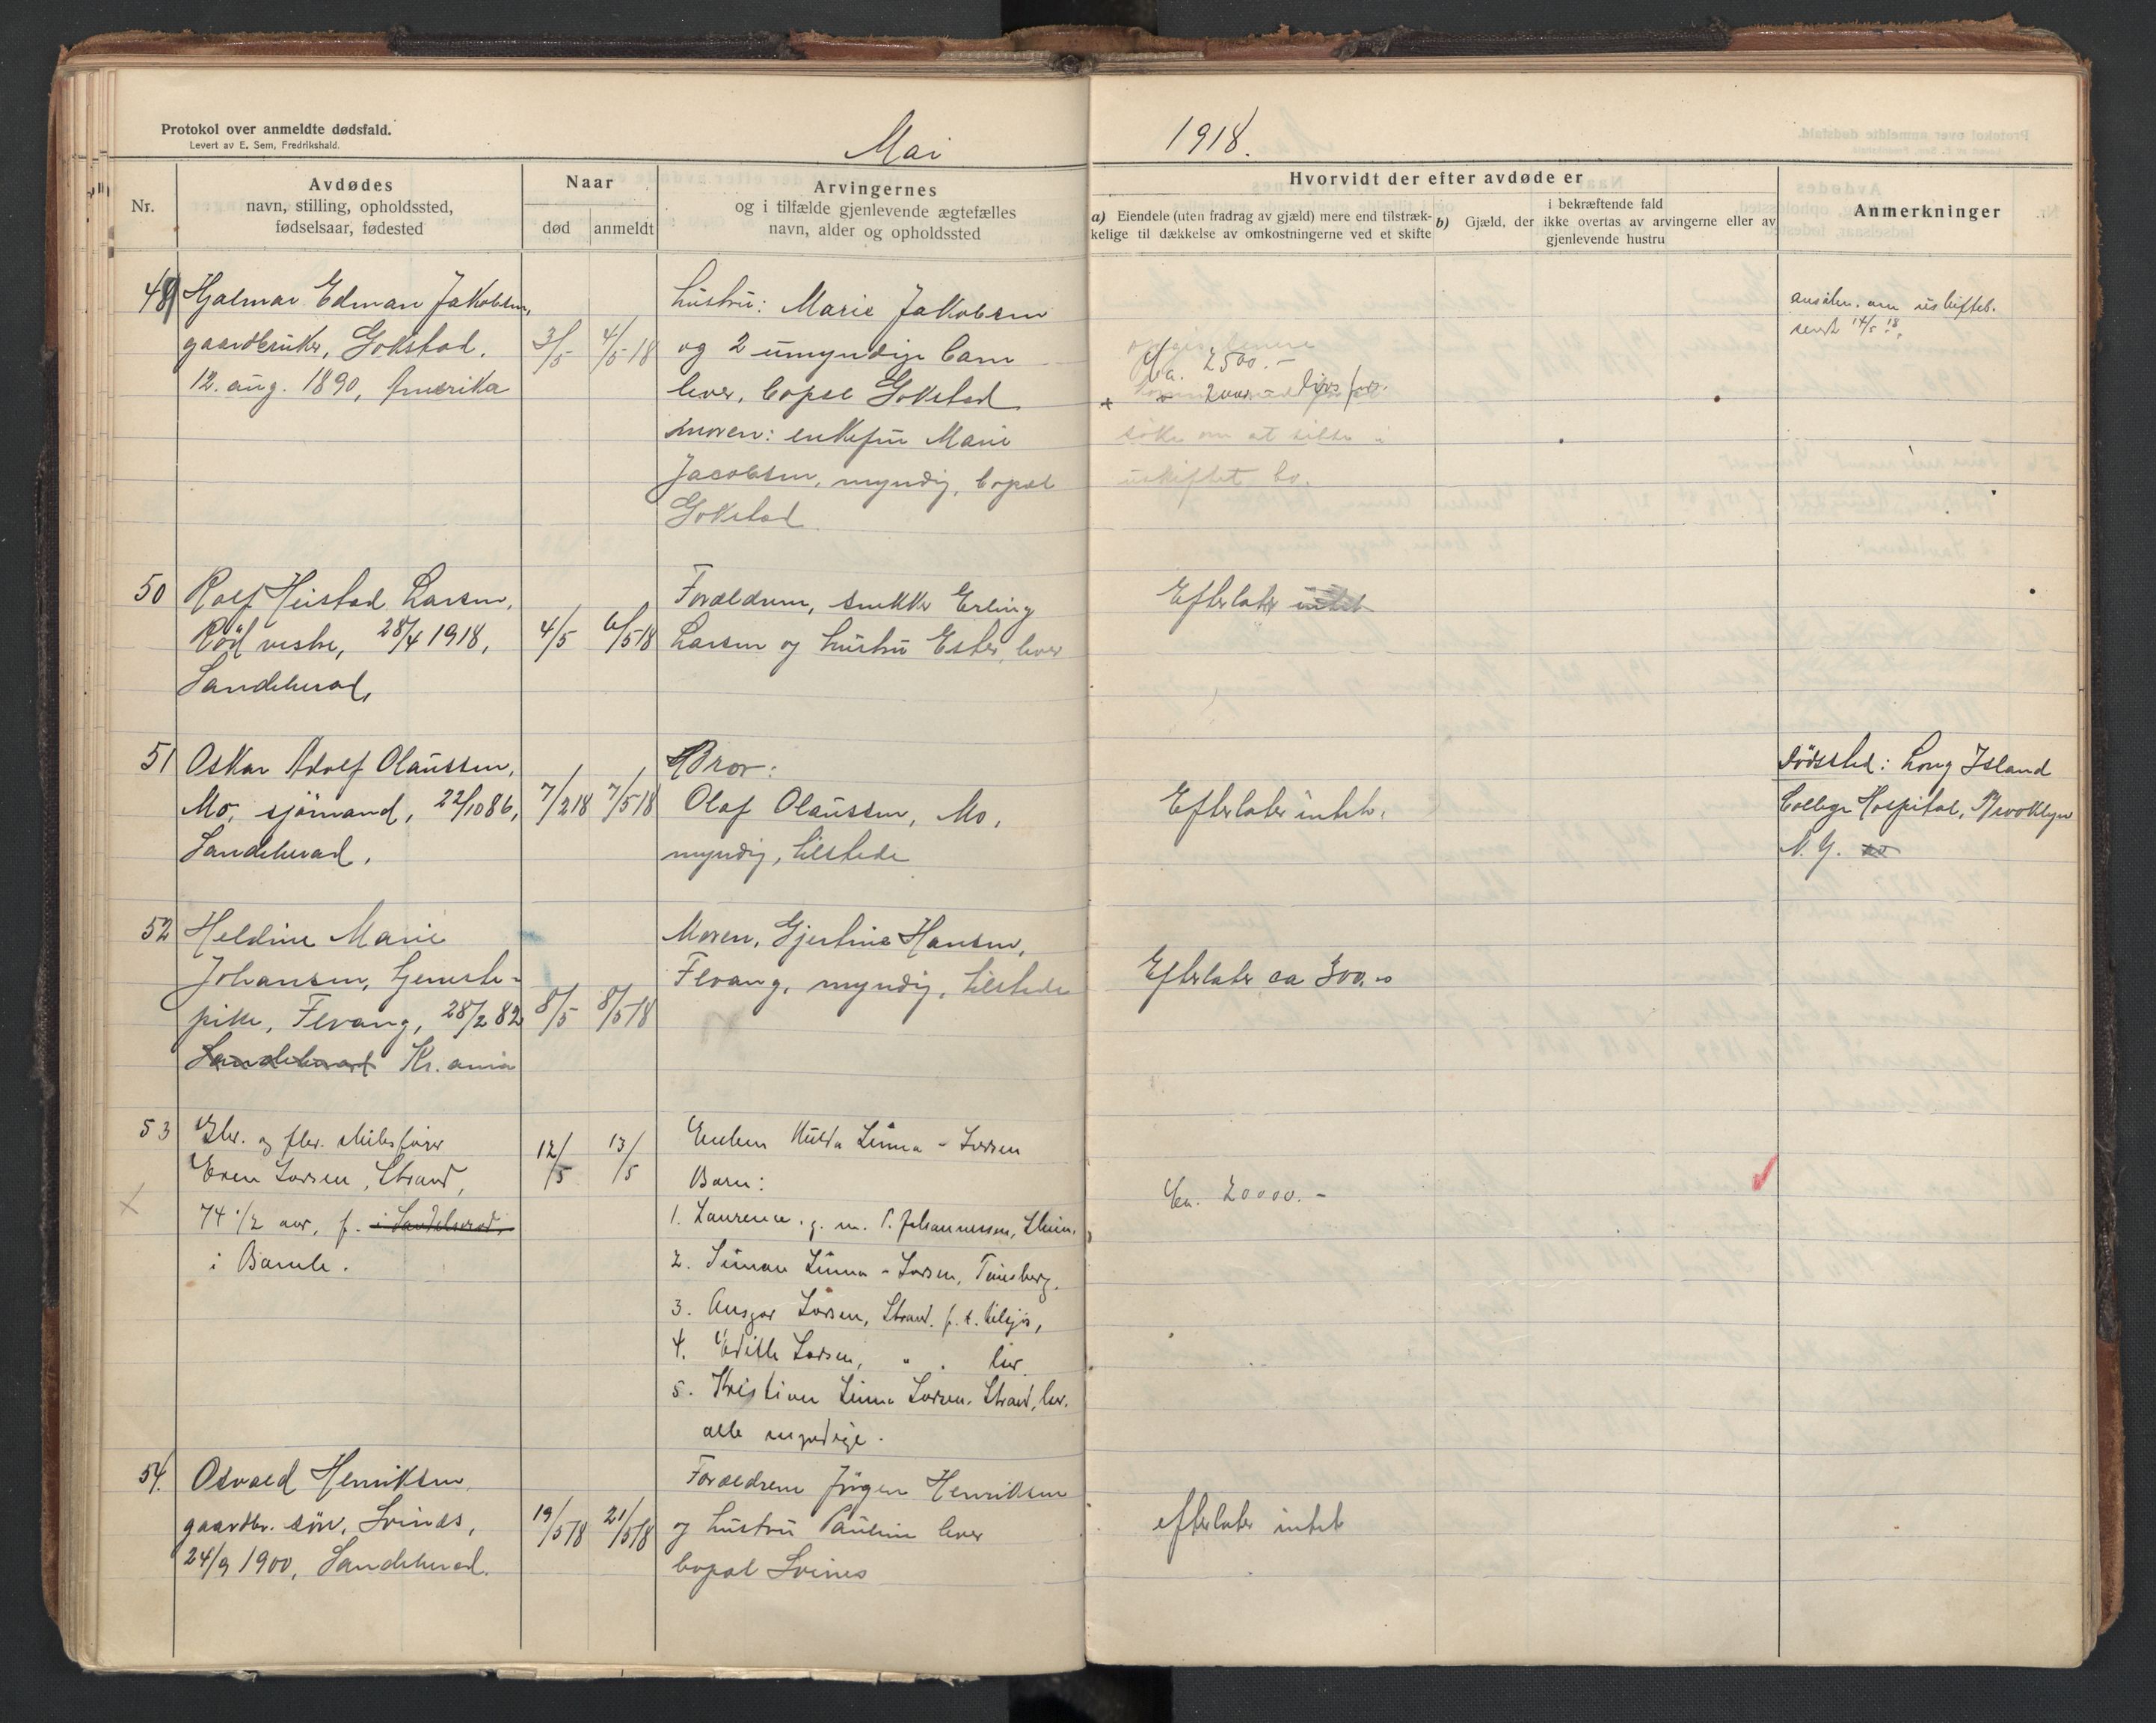 Protokol over anmeldte dødsfald.
Levert av E. Sem, Fredrikshald.
Mai
1918.
Nr.
Avdødes
navn, stilling, opholdssted,
fødselsaar, fødested
Naar
død
anmeldt
Arvingernes
og i tilfælde gjenlevende ægtefælles
navn, alder og opholdssted
Hvorvidt der efter avdøde er
a) Eiendele (uten fradrag av gjæld) mere end tilstræk-
kelige til dækkelse av omkostningerne ved et skifte
b) Gjæld, der
i bekræftende fald
ikke overtas av arvingerne eller av
gjenlevende hustru
Anmerkninger
Hjalmar Edman Jakobsen,
gaardbruker, Gokstad.
12. aug. 1890, Amerika
3/5
4/5 18
hustru: Marie Jakobsen
og 2 umyndige barn
lever, bopæl Gokstad
moren: enkefru Marie
Jacobsen, myndig, bopæl
Gokstad
Ca. 2500.-
+ " 2000 - livsfors.
søke om at sitte i
uskiftet bo.
ansøkn. om uskifteb.
sendt 14/5 18.
50
Rolf Heistad Larsen,
Röd vestre, 28/4 1918,
Sandeherad,
4/5
6/5 18
Forældrene, snekker Erling
Larsen og hustru Ester, lever
Efterlater intet
51
Oskar Adolf Olaussen,
Mo, sjömand, 22/10 86,
Sandeherad.
7/2 18
7/5 18
Bror:
Olaf Olaussen, Mo,
myndig, tilstede
Efterlater intet.
Dödssted: Long Island
College Hospital, Brooklyn
N. Y.
52
Heldine Marie
Johansen, tjeneste-
pike, Flvang, 28/2 82
Sandeherad Kr.ania
8/5
8/5 18
Moren, Gjertine Hansen,
Flvang, myndig, tilstede
Efterlater ca 300.-
53
Even Larsen, Strand,
74 1/2 aar, f. i Sandeherad,
i Bamle.
12/5
13/5
Enken Hulda Linna - Larsen
Barn:
1. Laurence, g. m. P. Johannessen,
2. Simon Linna - Larsen, Tønsberg.
3. Ansgar Larsen, Strand. f. t. tilsjøs,
4. Edith Larsen, " " her
5. Kristian Linna Larsen, Strand, her.
alle myndige.
Ca. 20000.-
54.
Osvald Henriksen,
gaardbr. sön, Svines,
24/9 1900, Sandeherad.
19/5 18
21/5 18
Forældrene Jörgen Henriksen
og hustru Pauline lever
bopæl Svines
efterlater intet